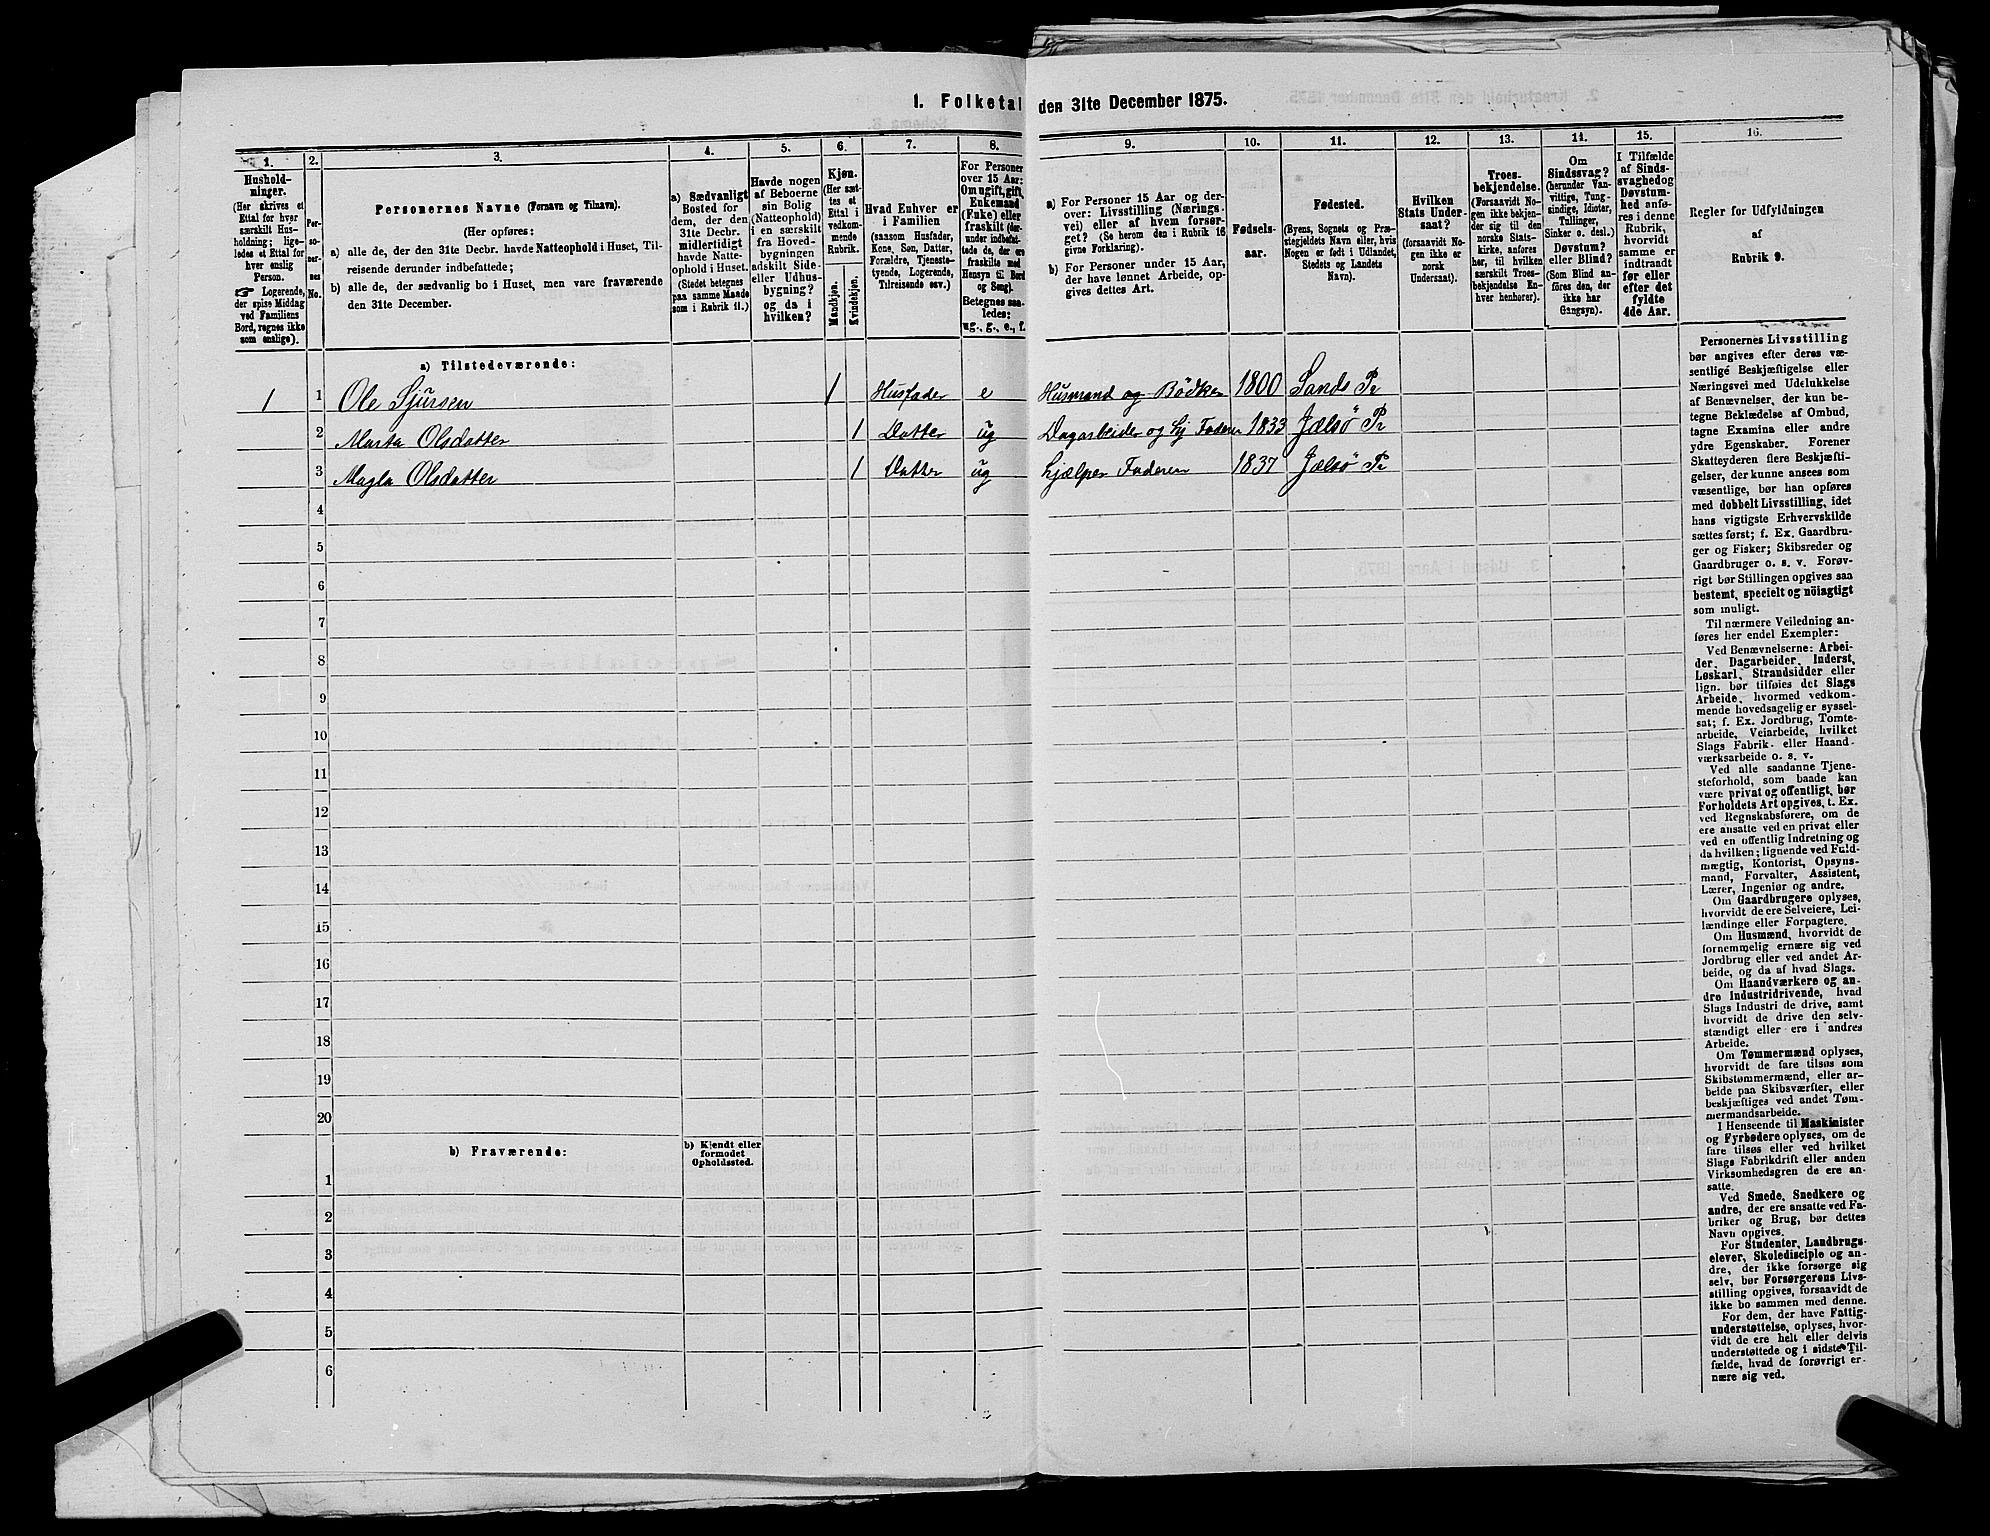 1. Folketal den 31te December 1875.
1.
2.
3.
4.
5.
6.
7.
8.
9.
10.
11.
12.
13.
14.
15.
16.
Husholdninger.
(Her skrives et
Ettal for hver
særskilt Husholdning;
ligeledes et Ettal for
hver enslig
Person.
☞ Logerende,
der spise Middag
ved Familiens
Bord, regnes ikke
som enslige).
Personernes No.
Personernes Navne (Fornavn og Tilnavn).
(Her opføres:
a) alle de, der den 31te Decbr. havde Natteophold i Huset, Tilreisende derunder indbefattede;
b) alle de, der sædvanlig bo i Huset, men vare fraværende
den 31te December.
a) Sædvanligt
Bosted for
dem, der den
31te Decbr.
midlertidigt
havde Natteophold i Huset.
(Stedet betegnes
paa samme Maade
som i Rubrik 11.)
Havde nogen
af Beboerne
sin Bolig
(Natteophold)
i en særskilt
fra Hovedbygningen
adskilt Side- eller Udhusbygning?
og da i
hvilken?
Kjøn.
(Her sættes et
Ettal i
vedkommende
Rubrik.
Mandkjøn.
Kvindekjøn.
Hvad Enhver er
i Familien
(saasom Husfader,
Kone, Søn, Datter,
Forældre, Tjenestetyende, Logerende,
Tilreisende osv.)
For Personer
over 15 Aar:
Om ugift, gift,
Enkemand
(Enke) eller
fraskilt (derunder indbefattede de, der ere
fraskilte med
Hensyn til Bord
og Seng).
Betegnes saaledes:
ug., g., e., f.
a) For Personer 15 Aar og derover: Livsstilling (Næringsvei) eller af hvem forsørget? (Se herom den i Rubrik 16
givne Forklaring).
b) For Personer under 15 Aar,
der have lønnet Arbeide, opgives dettes Art.
Fødselsaar.
Fødested.
(Byens, Sognets og Præstegjeldets Navn eller, hvis
Nogen er født i Udlandet,
Stedets og Landets
Navn).
Hvilken
Stats Undersaat?
(forsaavidt Nogen ikke er
norsk
Undersaat).
Troesbekjendelse.
(Forsaavidt Nogen ikke bekjender sig til den
norske Statskirke, anføres
her, til hvilken
særskilt Troesbekjendelse Enhver henhører).
Om
Sindssvag?
(herunder Vanvittige, Tungsindige, Idioter,
Tullinger,
Sinker o. desl.)
Døvstum?
eller Blind?
(Som Blind anføres den, der
ikke har
Gangsyn).
I Tilfælde
af Sindssvaghed og
Døvstumhed anføres i denne
Rubrik,
hvorvidt
samme er
indtraadt
før eller
efter det
fyldte
4de Aar.
Regler for Udfyldningen
af
Rubrik 9.
a) Tilstedeværende:
1 1 Ole Sjursen 1 Husfader e Husmand og Bödker 1800 Sands Pr
2 Marta Olsdatter 1 Datter ug Dagarbeider og hj Faderen 1833 Jælsö Pr
3 Magla Olsdatter 1 Datter ug hjælper Faderen 1837 Jælsö Pr
4
5
6
7
8
9
10
11
12
13
14
15
16
17
18
19
20
b) Fraværende:
b) Kjendt eller
formodet
Opholdssted.
1
2
3
4
5
6
Personernes Livsstilling
bør angives efter deres væsentlige Beskjæftigelse eller
Næringsvei med Udelukkelse
af Benævnelser, der kun betegne Beklædelse af Ombud,
tagne Examina eller andre
ydre Egenskaber. Forener
Skatteyderen flere Beskjæftigelser, der kunne ansees som
væsentlige, bør han opføres
med dobbelt Livsstilling, idet
hans vigtigste Erhvervskilde
sættes først; f. Ex. Gaardbruger og Fisker; Skibsreder og
Gaardbruger o. s. v. Forøvrigt bør Stillingen opgives saa
bestemt, specielt og nöiagtigt
som muligt.
Til nærmere Veiledning anføres her endel Exempler:
Ved Benævnelserne: Arbeider, Dagarbeider, Inderst,
Løskarl, Strandsidder eller
lign. bør tilføies det Slags
Arbeide, hvormed vedkommende hovedsagelig er sysselsat; f. Ex. Jordbrug, Tomtearbeide, Veiarbeide, hvilket
Slags Fabrik- eller Haandværksarbeide o. s. v.
Ved alle saadanne Tjenesteforhold, som baade kan
være privat og offentligt, bør
Forholdets Art opgives, t. Ex.
ved Regnskabsførere, om de
ere ansatte ved en privat eller
ved en offentlig Indretning og
da hvilken; lignende ved Fuldmægtig, Kontorist, Opsynsmand, Forvalter, Assistent,
Lærer, Ingeniør og andre.
Om Gaardbrugere oplyses,
hvorvidt de ere Selveiere, Leilændinge eller Forpagtere.
Om Husmænd, hvorvidt de
fornemmelig ernære sig ved
Jordbrug eller ved andet Arbeide, og da af hvad Slags.
Om Haandværkere og andre Industridrivende, hvad
Slags Industri de drive, samt
hvorvidt de drive den selvstændigt eller ere i andres
Arbeide.
Om Tømmermænd oplyses,
hvorvidt de fare tilsøs som
Skibstømmermænd, eller arbeide paa Skibsværfter, eller
beskjæftiges ved andet Tømmermandsarbeide.
I Henseende til Maskinister
og Fyrbødere oplyses, om de
fare tilsøs eller ved hvilket
Slags Fabrikdrift eller anden
Virksomhedsgren de ere ansatte.
Ved Smede, Snedkere og
andre, der ere ansatte ved Fabriker og Brug, bør dettes
Navn opgives.
For Studenter, Landbrugselever, Skoledisciple og andre, der ikke forsørge sig
selv, bør Forsørgerens Livsstilling opgives, forsaavidt de
ikke bo sammen med denne.
For dem, der have Fattigunderstøttelse, oplyses, hvorvidt de ere helt eller delvis
understøttede og i sidste Tilfælde, hvad de forøvrigt ernære sig ved.